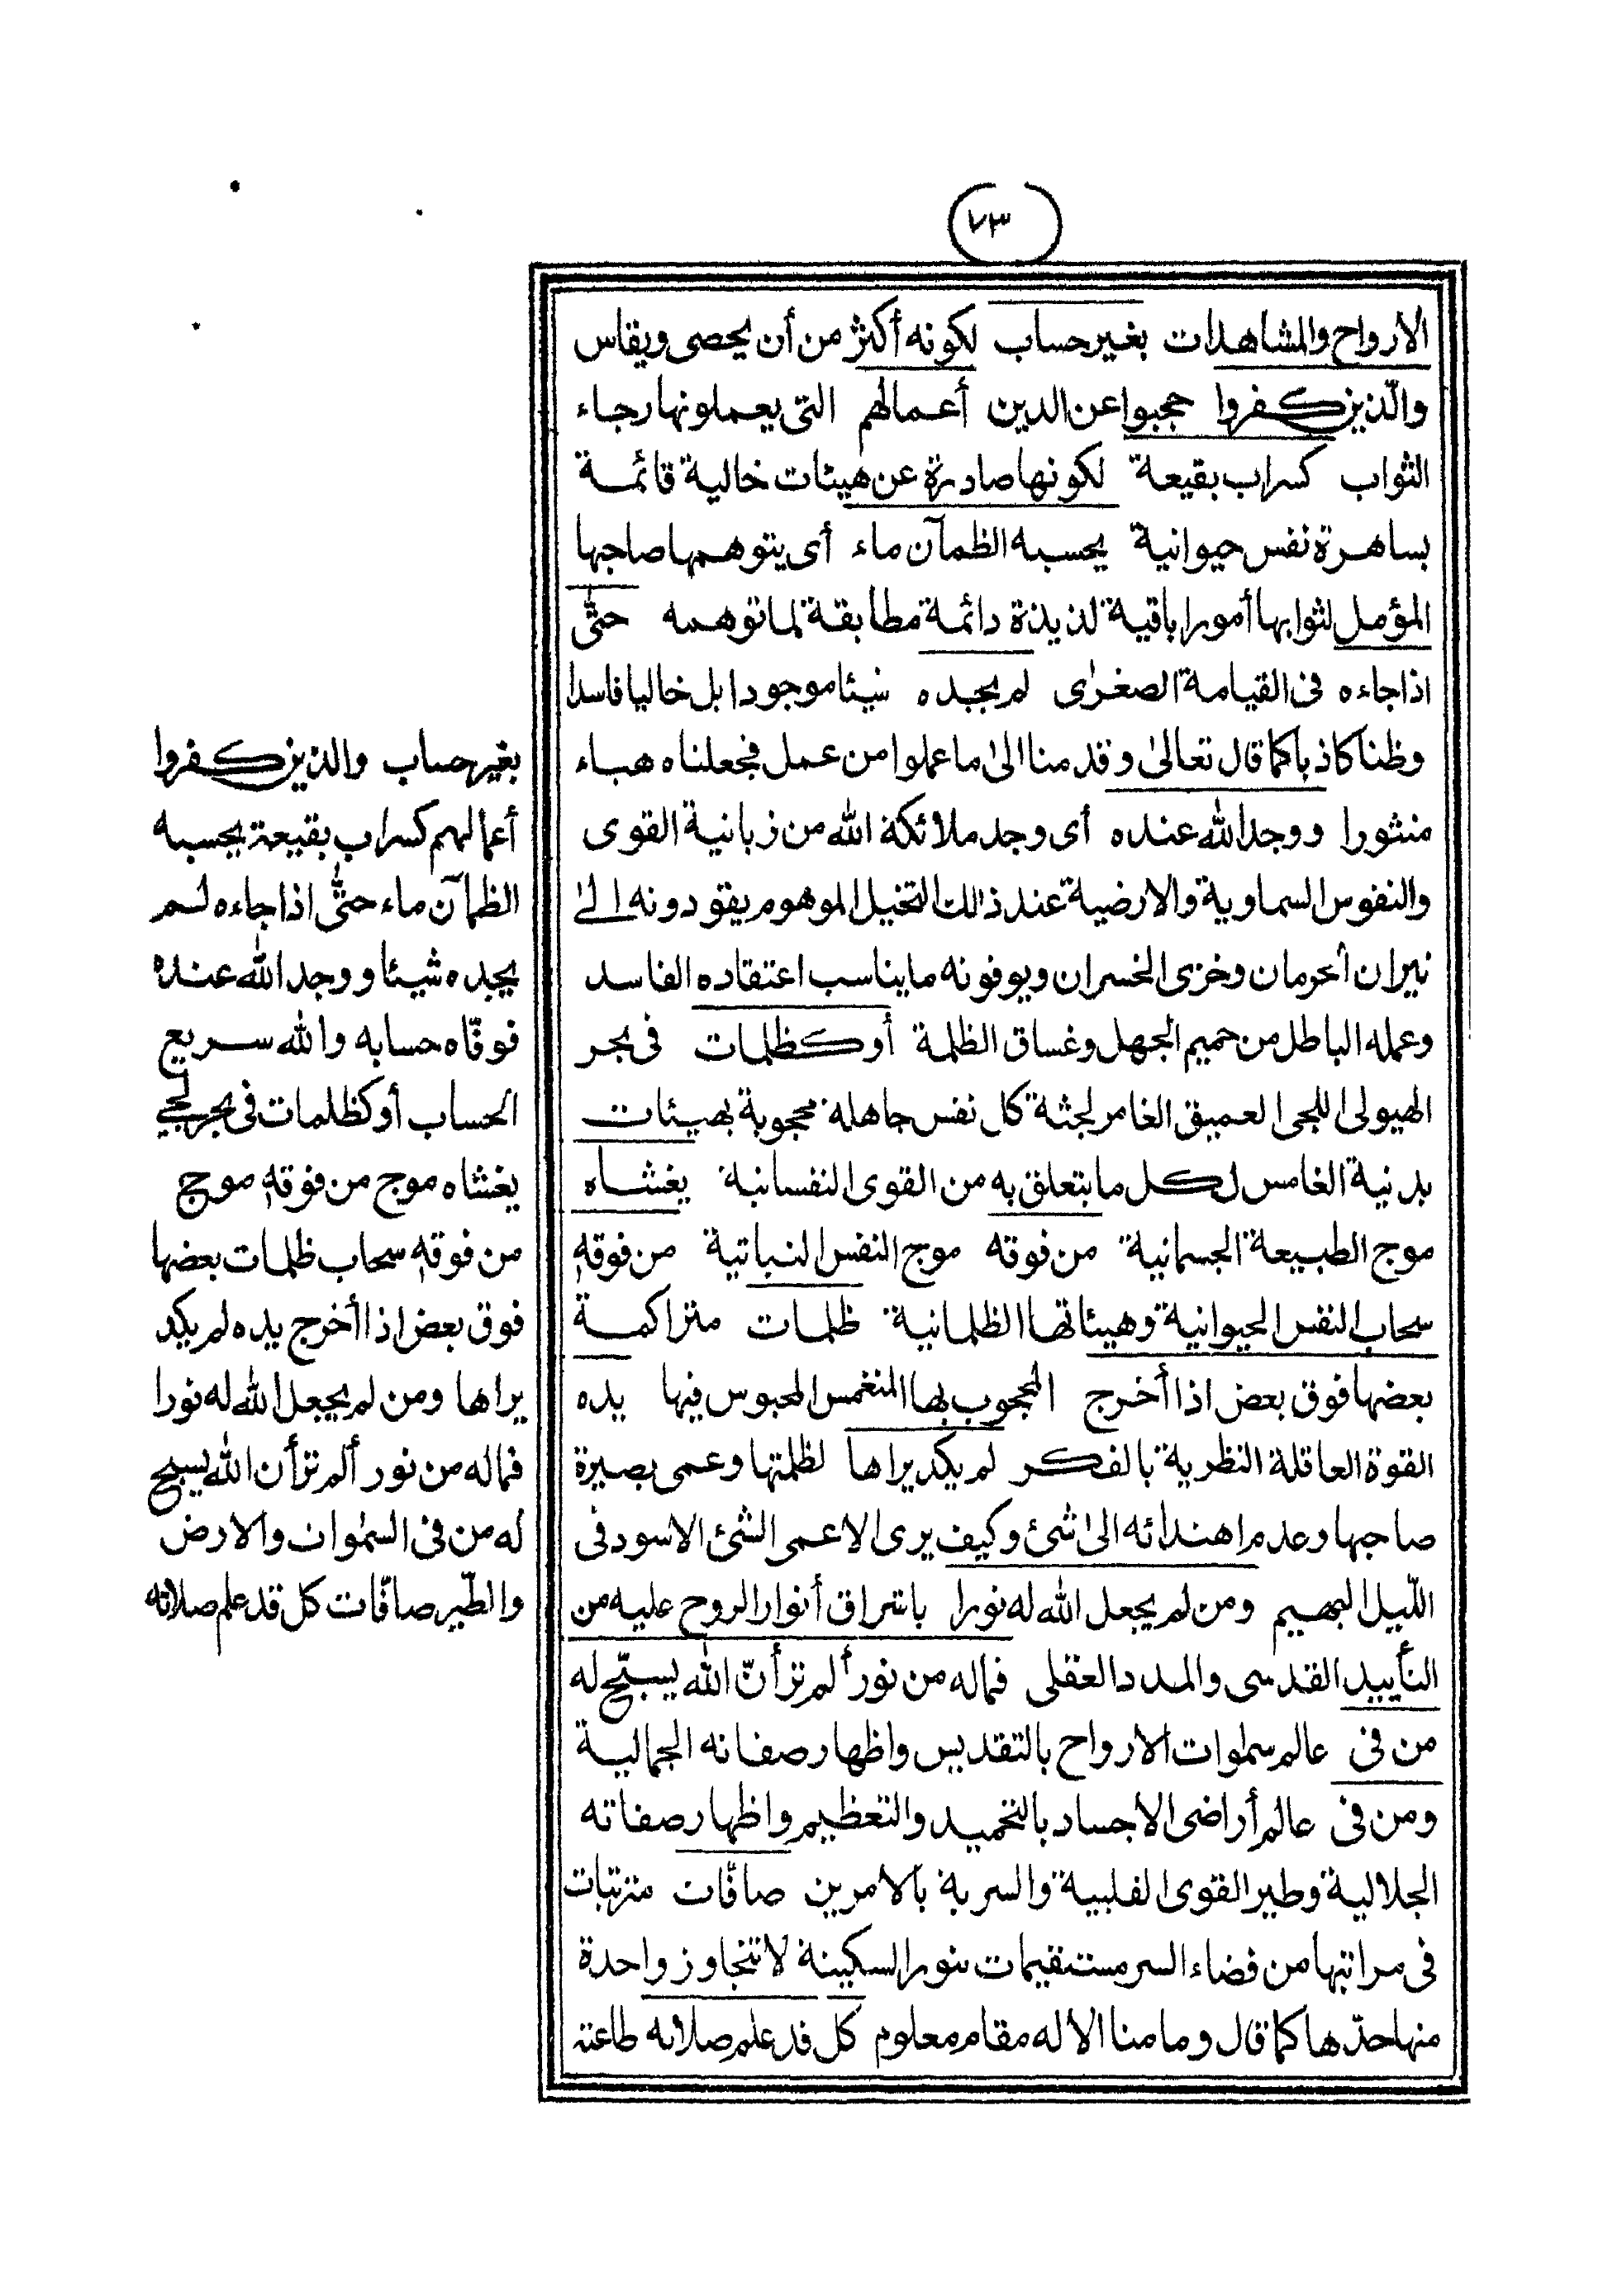 ٧٣
الارواح والمشاهدات بغير حساب لكونه أكثر من أن يحصى ويقاس
والّذين كفروا حجبوا عن الدين أعمالهم التى يعملونها رجاء
الثواب كسراب بقيعة لكونها صادرة عن هيئات خالية قائمة
بساهرة نفس حيوانية يحسبه الظمآن ماء أى يتوهمها صاحبها
المؤمل لثوابها أمورا باقية لذيذة دائمة مطابقة لما توهمه حتّى
اذا جاءه فى القيامة الصغرى لم يجده شيئا موجودا بل خاليا فاسدا
وظنا كاذبا كما قال تعالى وقدمنا الى ما عملوا من عمل فجعلناه هباء
منثورا ووجد الله عنده أى وجد ملائكة الله من زبانية القوى
والنفوس السماوية والارضية عند ذلك التخيل الموهوم يقودونه الى
نيران الحرمان وخزى الخسران ويوفونه ما يناسب اعتقاده الفاسد
وعمله الباطل من حميم الجهل وغساق الظلمة أو كظلمات فى بحر
الهيولى اللجى العميق الغامر لجثة كل نفس جاهلة محجوبة بهيئات
بدنية الغامس لكل ما يتعلق به من القوى النفسانية يغشاه
موج الطبيعة الجسمانية من فوقه موج النفس النباتية من فوقه
سحاب النفس الحيوانية وهيئاتها الظلمانية ظلمات متراكمة
بعضها فوق بعض اذا أخرج المحجوب بها المنغمس المحبوس فيها يده
القوة العاقلة النظرية بالفكر لم يكد يراها لظلمتها وعمى بصيرة
صاحبها وعدم اهتدائه الى شئ وكيف يرى الاعمى الشئ الاسود فى
اللّيل البهيم ومن لم يجعل الله له نورا باشراق أنوار الروح عليه من
التأييد القدسى والمدد العقلى فماله من نور ألم تر أنّ الله يسبّح له
من فى عالم سموات الارواح بالتقديس واظهار صفاته الجمالية
ومن فى عالم أراضى الاجساد بالتحميد والتعظيم واظهار صفاته
الجلالية وطير القوى القلبية والسرية بالامرين صافّات مترتبات
فى مراتبها من فضاء السر مستقيمات بنور السكينة لا تتجاوز واحدة
منها حدّها كما قال وما منا الا له مقام معلوم كل قد علم صلاته طاعته
بغير حساب والذين كفروا
أعمالهم كسراب بقيعة يحسبه
الظمآن ماء حتّى اذا جاءه لم
يجده شيئا ووجد الله عنده
فوفّاه حسابه والله سريع
الحساب أو كظلمات فى بحر لجى
يغشاه موج من فوقه موج
من فوقه سحاب ظلمات بعضها
فوق بعض اذا أخرج يده لم يكد
يراها ومن لم يجعل الله له نورا
فماله من نور ألم تر أن الله يسبح
له من فى السموات والارض
والطّير صافّات كل قد علم صلاته